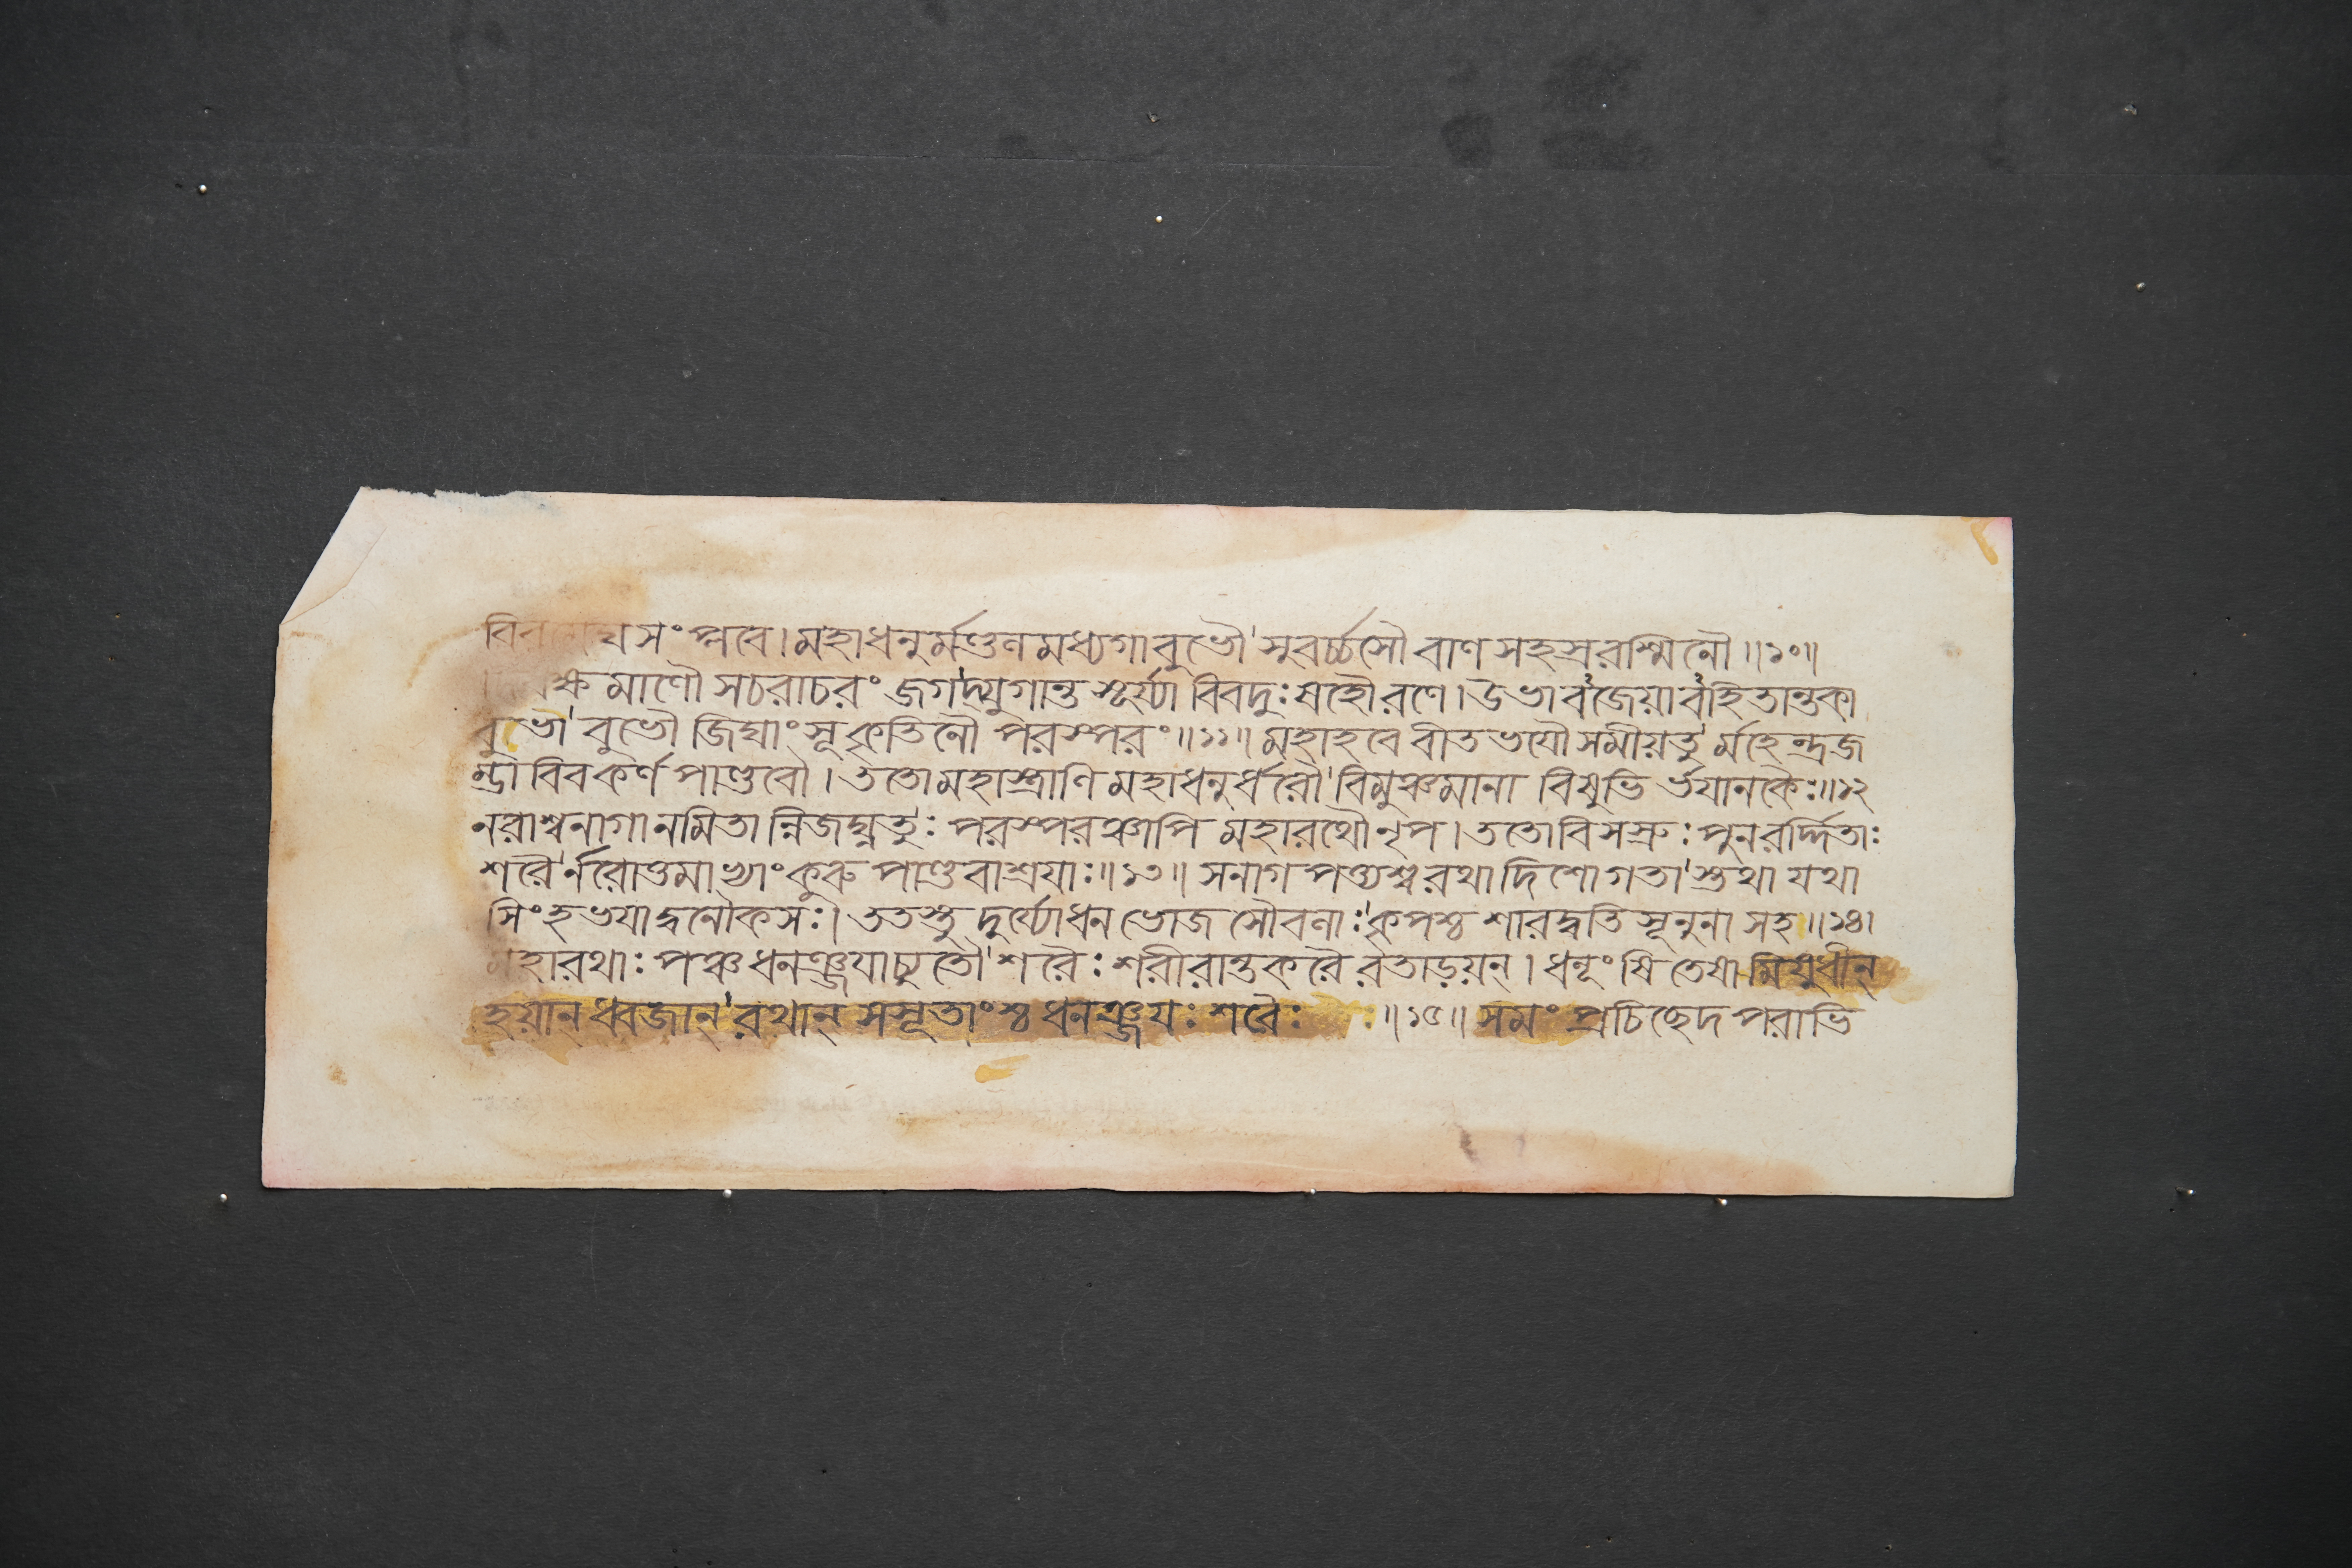 সংপ্লবে। মহাধনুর্মণ্ডলমধ্যগাবুভৌ সুবর্চ্চসৌ বাণসহস্ররশ্মিনৌ॥১০॥
মাণৌ সচরাচরং জগদ্যুগান্তসূর্য্যাবিবদুঃষহৌরণে। উভাবজেয়াবহিতান্তকা
বুভৌ বুভৌ জিঘাংসূকৃতিনৌ পরস্পরং॥১১॥ মহাহবে বীতভযৌ সমীয়তুর্মহেন্দ্রজ
ম্ভাবিবকর্ণপাণ্ডবৌ। ততোমহাস্ত্রাণি মহাধনুর্ধরৌ বিমুঞ্চমানা বিষুভি র্ভযানকৈঃ॥১২
নরাশ্বনাগানমিতান্নিজঘ্নতুঃ পরস্পরঞ্চাপি মহারথৌনৃপ। ততোবিসস্রুঃ পুনরর্দ্দিতাঃ
শরৈর্নরোত্তমাভ্যাং কুরুপাণ্ডবাশ্রযাঃ॥১৩॥ সনাগপত্ত্যশ্বরথাদিশোগতাস্তথা যথা
সিংহভযাদ্বনৌকসঃ। ততস্তু দুর্য্যোধনভোজসৌবলাঃ কৃপশ্চ শারদ্বতিসূনুনা সহ॥১৪।
মহারথাঃ পঞ্চধনঞ্জযাচ্যুতৌ শরৈঃ শরীরান্তকরৈরতাড়য়ন্। ধনূংষিতেষামিষুধীন্
হয়ান্ ধ্বজান্ রথান্ সসূতাংশ্চধনঞ্জযঃ শরৈঃ ॥১৫॥ সমং প্রচিচ্ছেদ পরাভি